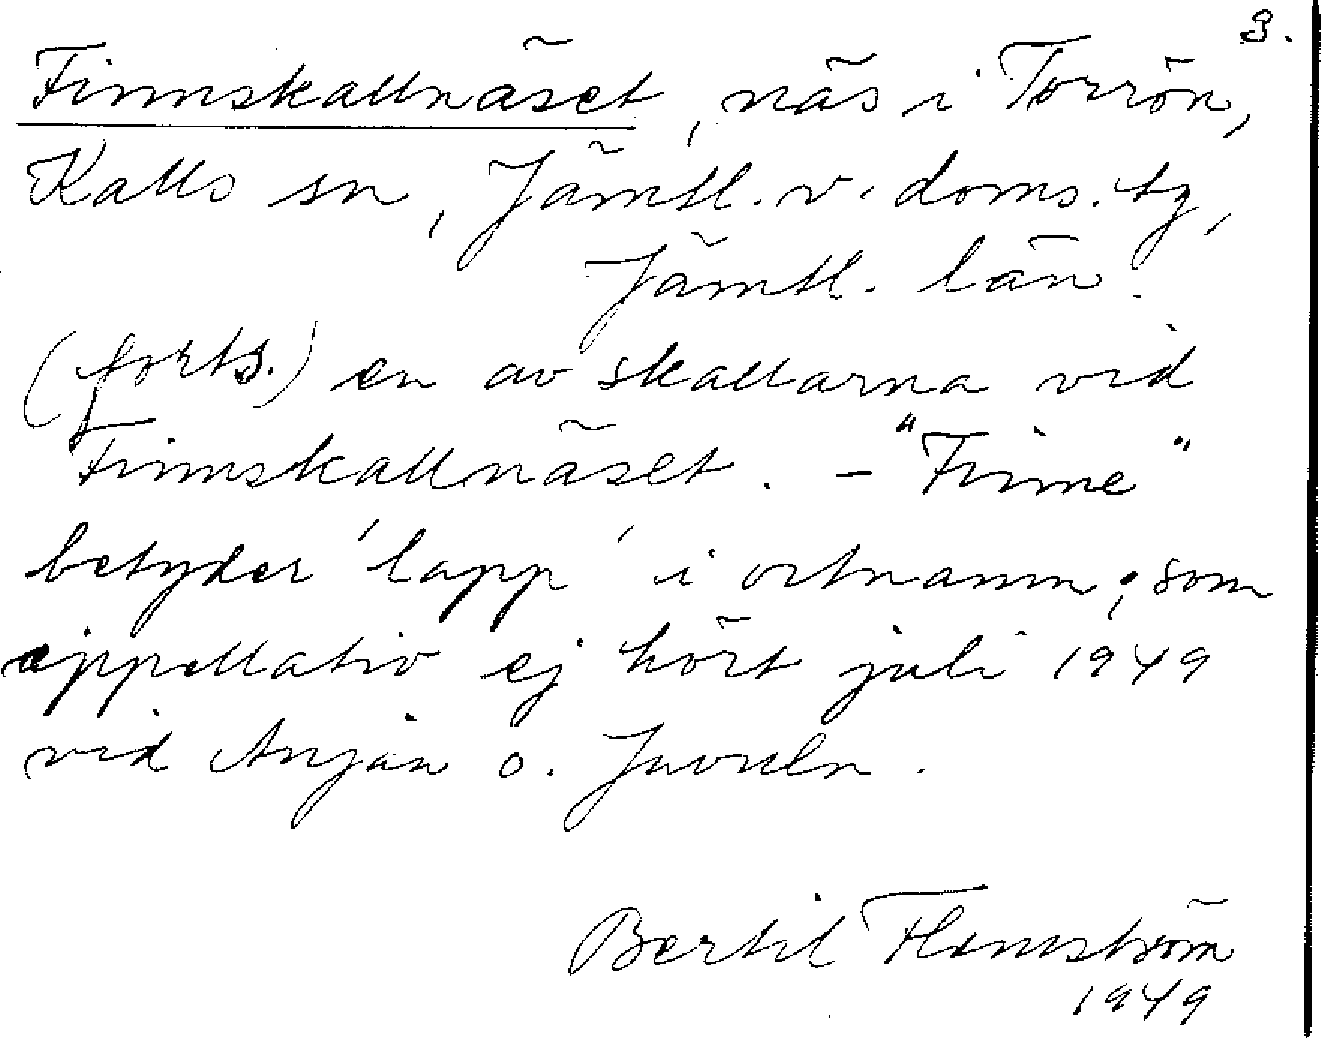 3.
Finnskallnäset, näs i Torrön,
Kalls sn, Jämtl. v. doms. tg,
Jämtl. län.
(forts.) en av skallarna vid
Finnskallnäset. – "Finne"
betyder 'lapp' i ortnamn; som
appellativ ej hört juli 1949
vid Anjan o. Juveln.
Bertil Flemström
1949